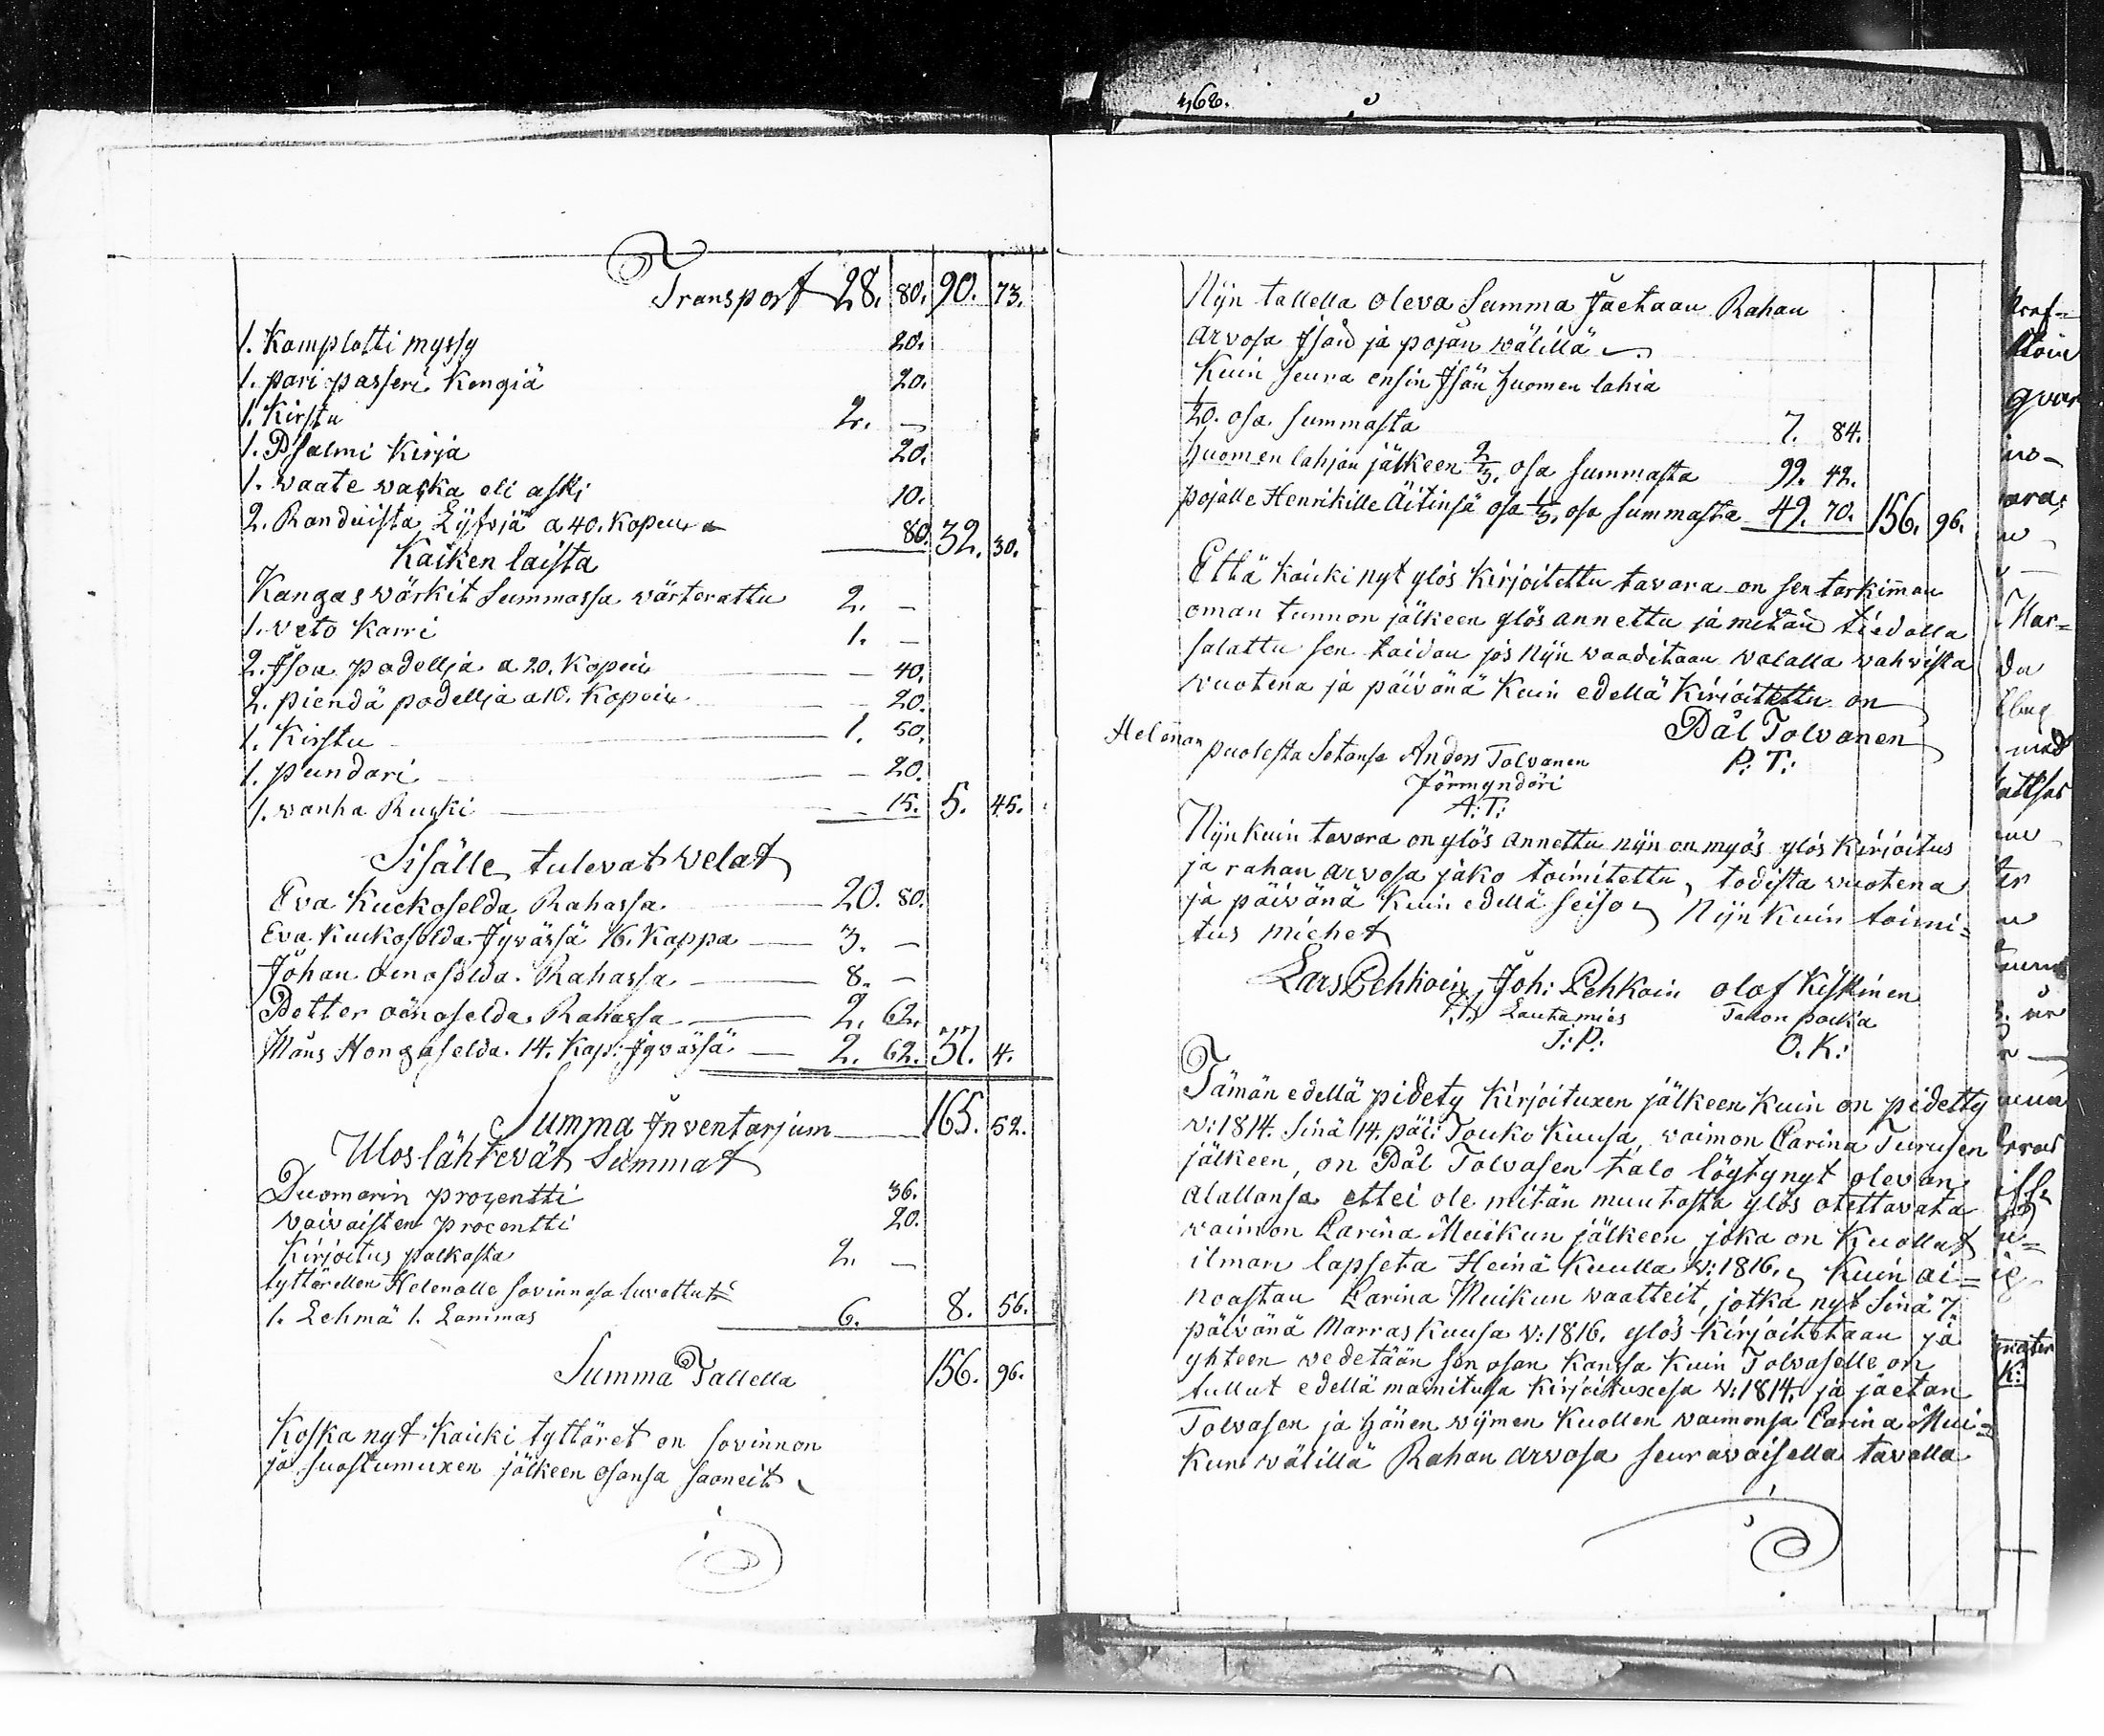 462.
Transport 28. 80. 90. 73.
1. Kamplotti myssy 20.
1. pari passeri Kengiä 20.
1. Kirstu 2. —
1. Psalmi Kirja 20.
1. waate wacka eli aski 10.
2. Randuista Lijfviä a 40. Kopeu 80. 32. 30.
Kaiken laista
Kangas wärkit Summassa wärterattu 2. —
1. veto Karri 1. —
2. Isoa padellia a 20. Kopeu — 40.
2. piendä padellia a 10. Kopeu — 20.
1. Kirstu 1. 50.
1. pundari — 20.
1. wanha Ruuki — 15. 5. 45.
Sisälle tulevat velat
Eva Kuckoselda Rahassa 20. 80.
Eva Kuckoselda Jywässä 16. Kappa — 3. —
Johan oinoselda. Rahassa — 8. —
Petter oinoselda Rahassa — 2. 62.
Måns Hongaselda. 14. Kap: Jywässä — 2. 62. 37. 4.
Summa Inventarjum 165. 52.
Ulos lähtevät Summat
Duomarin prozentti 36.
Vaivaisten procentti 20.
Kirjoitus palkasta 2. —
tyttärellen Helenalle sovinnosa luvattut
1. Lehmä 1. Lammas 6. 8. 56.
Summa Tallella 156. 96.
Koska nyt Kaicki tyttäret on sovinnon
ja suostumuxen jälkeen osansa saaneit
Nijn tallella oleva Summa Jaetaan Rahan
arvosa Isän ja pojan välillä
Kuin seura ensin Isän huomen lahia
1/20. osa summasta 7. 84.
huomen lahjan jälkeen 2/3. osa summasta 99. 42.
pojalle Henrikille Äitinsä osa 1/3. osa summasta 49. 70. 156. 96.
Että kaicki nyt ylös Kirjoitettu tavara on sen tarkimman
oman tunnon jälkeen ylös annettu ja mitän tiedolla
salattu sen taidan jos nijn waaditaan walalla wahvista
vuotena ja päivänä Kuin edellä Kirjoitettu on
Pål Tolvanen
P: T:
Helenan puolesta Setänsä Anders Tolvanen
Förmyndöri
A: T:
Nijn Kuin tavara on ylös annettu nijn on myös ylös Kirjoitus
ja rahan arvosa jako toimitettu, todista vuotena
ja päivänä Kuin edellä seiso Nijn Kuin toimi=
tus miehet
Lars Pehkoin, Joh: Pehkoin olof Kiskinen
Lautamies Talon poika
J: P: O. K:
Tämän edellä pidety Kirjoituxen jälkeen Kuin on pidetty
v: 1814. Sinä 14. päi: Touko Kuusa, vaimon Carina Turusen
jälkeen, on Pål Tolvasen talo löytynyt olevan
alallansa ettei ole mitän muutosta ylös otettavata
vaimon Carina Muikun jälkeen joka on Kuollut
ilman lapseta Heinä Kuulla v: 1816., Kuin ai=
noastan Carina Muikun waatteit, jotka nyt Sinä 7.
päivänä Marras Kuusa v: 1816. ylös kirjoitetaan ja
yhteen vedetään sen osan kanssa Kuin Tolvaselle on
tullut edellä mainitusa Kirjoituxesa v: 1814. ja jaetan
Tolvasen ja hänen wijmen Kuollen vaimonsa Carina Mui=
Kun välillä Rahan arvosa seuravaisella tavalla